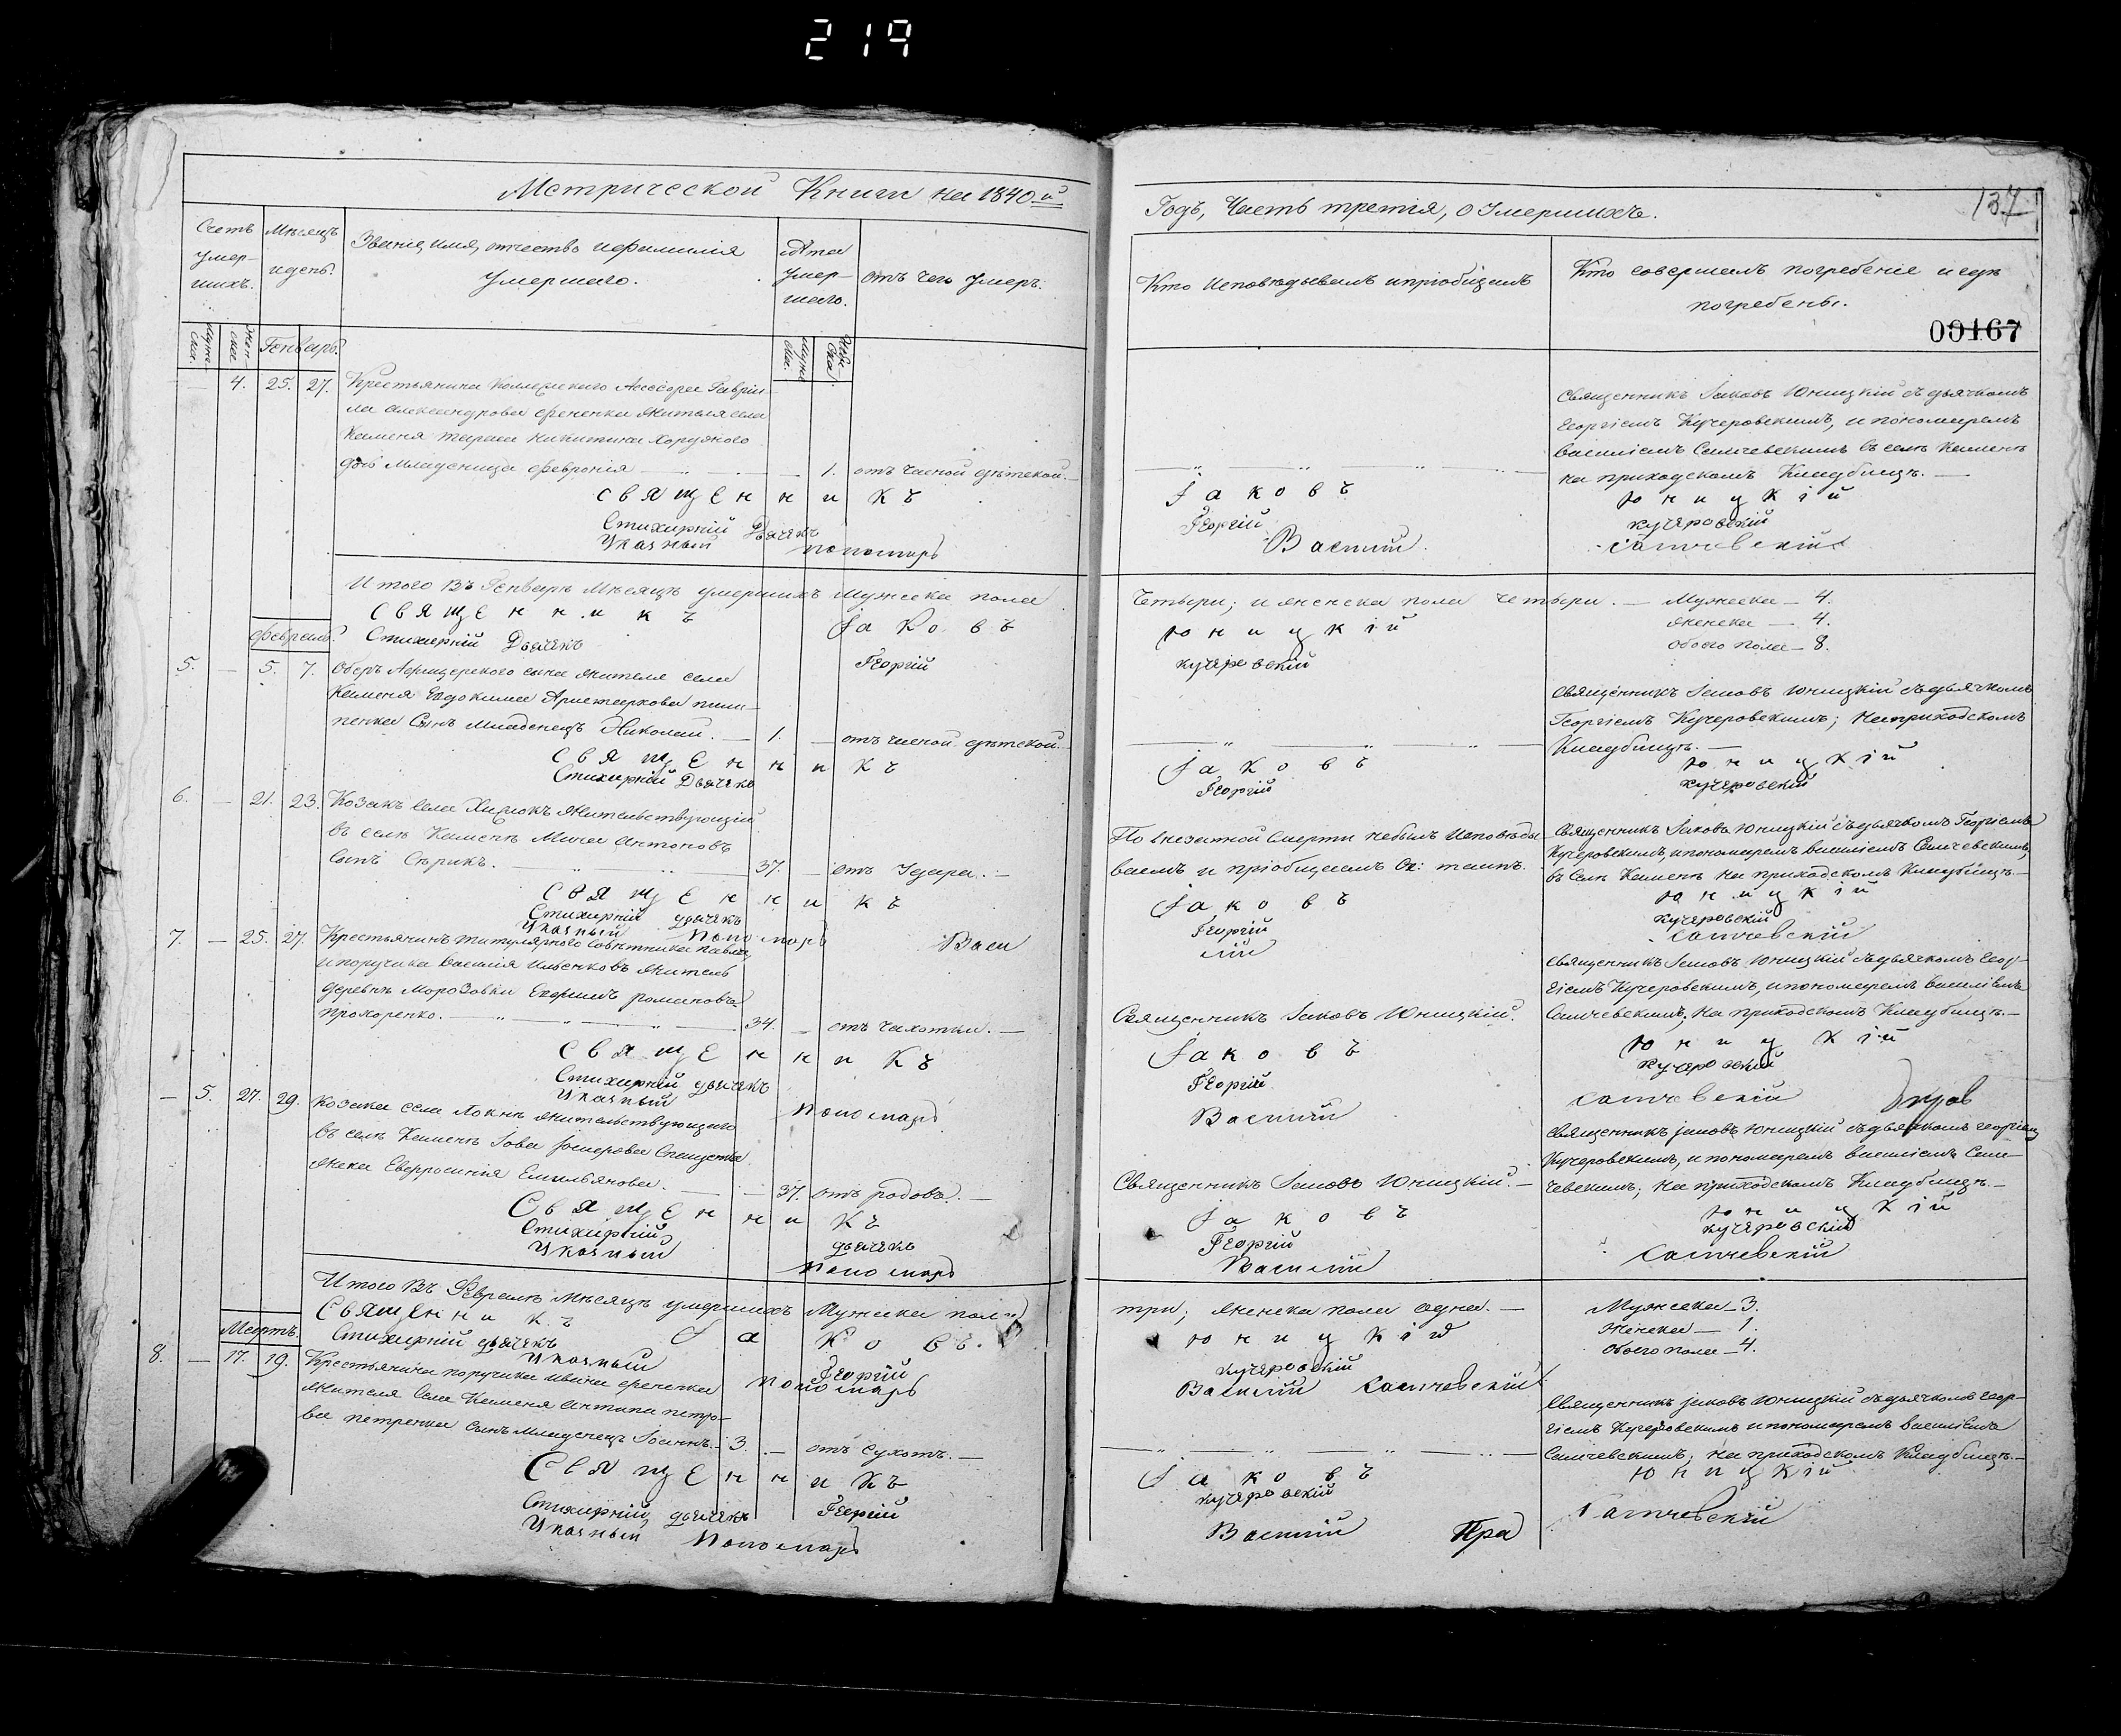 219
Метрической Книги на 1840й
Годъ, Часть третія, о Умершихъ.
137
00167
Счетъ умер-
шихъ.
Мѣсяцъ
и день.
Званіе, имя, отчество и фамилія
умершаго.
Лѣта
умер-
шаго.
отъ чего умеръ.
Кто исповѣдывалъ и пріобщалъ
Кто совершалъ погребеніе и гдѣ
погребены.
Муже-
ска.
Жен-
ска
Генварь.
Муже-
ска.
Жен-
ска
4. 25. 27. Крестьянина Коллежскаго Асессора Гаврiи-
ла Александрова жителя села
Каменя Тараса Никитина
дочь Младеница Февронія 1. отъ детской.
Священникъ Іаковъ Юницкій съ дьячкомъ
Георгіемъ Кучеровскимъ, и пономаремъ
Василіемъ Самчевскимъ въ селѣ Каменѣ
на приходскомъ Кладбищѣ.
Священникъ Іаковъ Юницкій
Стихирный Дьячекъ Георгій Кучеровскій
Указный пономарь Василій Самчевскій
Итого Въ Генварѣ Мѣсяцѣ умершихъ Мужеска пола
Четыри; и женска пола четыри. Мужеска 4.
Женска 4.
обоего пола 8.
Священникъ Іаковъ Юницкій
Стихирный Дьячекъ Георгій Кучеровскій
Февраль.
5. 5. 7. Оберъ Афицерского сына жителя села
Каменя Евдокима Аристархова Пили-
пенка Сынъ Младенецъ Николай. 1. отъ детской.
Священникъ Іаковъ Юницкій съ дьячкомъ
Георгіемъ Кучеровскимъ; на приходскомъ
Кладбищѣ.
Священникъ Іаковъ Юницкій
Стихирный Дьячекъ Георгій Кучеровскій
6. 21. 23. Козакъ села жительствующій
въ селѣ Каменѣ Мина Антоновъ
сынъ Сѣрикъ. 37. отъ Удара.
По внезапной смерти небылъ исповѣды-
ваемъ и пріобщаемъ Св: таинъ.
Священникъ Іаковъ Юницкій съ дьячкомъ Георгіемъ
Кучеровскимъ, и пономаремъ Василіемъ Самчевскимъ,
въ селѣ Каменѣ на приходскомъ Кладбищѣ.
Священникъ Іаковъ Юницкій
Стихирный дьячекъ Георгій Кучеровскій
Указный Пономарь Василій Самчевскій
7. 25. 27. Крестьянинъ титулярного Совѣтника Павла,
и поручика Василія Ильенковъ житель
деревнѣ Морозовки Ефимъ Романовъ
Прохоренко. 34. отъ чахотки.
Священникъ Іаковъ Юницкій.
Священникъ Іаковъ Юницкій съ дьячкомъ Геор-
гіемъ Кучеровскимъ, и пономаремъ Василіемъ
Самчевскимъ; на приходскомъ Кладбищѣ.
Священникъ Іаковъ Юницкій
Стихирный дьячекъ Георгій Кучеровскій
Указный пономарь Василій Самчевскій
5. 27. 29. Козака села Локнѣ жительствующаго
въ селѣ Каменѣ Іова
жена Евфросинія Емильянова. 37. отъ родовъ.
Священникъ Іаковъ Юницкій.
Священникъ Іаковъ Юницкій съ дьячкомъ Георгіемъ
Кучеровскимъ, и пономаремъ Василіемъ Сам-
чевскимъ; на приходскомъ Кладбищѣ.
Священникъ Іаковъ Юницкій
Стихирный дьячекъ Георгій Кучеровскій
Указный пономарь Василій Самчевскій
Итого Въ Февралѣ Мѣсяцѣ умершихъ Мужеска пола
три; женска пола одна. Мужеска 3.
Женска 1.
обоего пола 4.
Священникъ Іаковъ Юницкій
Стихирный дьячекъ Георгій Кучеровскій
Указный Пономарь Василій Самчевскій
Мартъ.
8. 17. 19. Крестьянина поручика Ивана
жителя села Каменя Антипа Петро-
ва Петренка сынъ Младенецъ Іоаннъ. 3. отъ сухотъ.
Священникъ Іаковъ Юницкій съ дьячкомъ Геор-
гіемъ Кучеровскимъ и пономаремъ Василіемъ
Самчевскимъ; на приходскомъ Кладбищѣ.
Священникъ Іаковъ Юницкій
Стихирный дьячекъ Георгій Кучеровскій
Указный Пономарь Василій Самчевскій
Пра